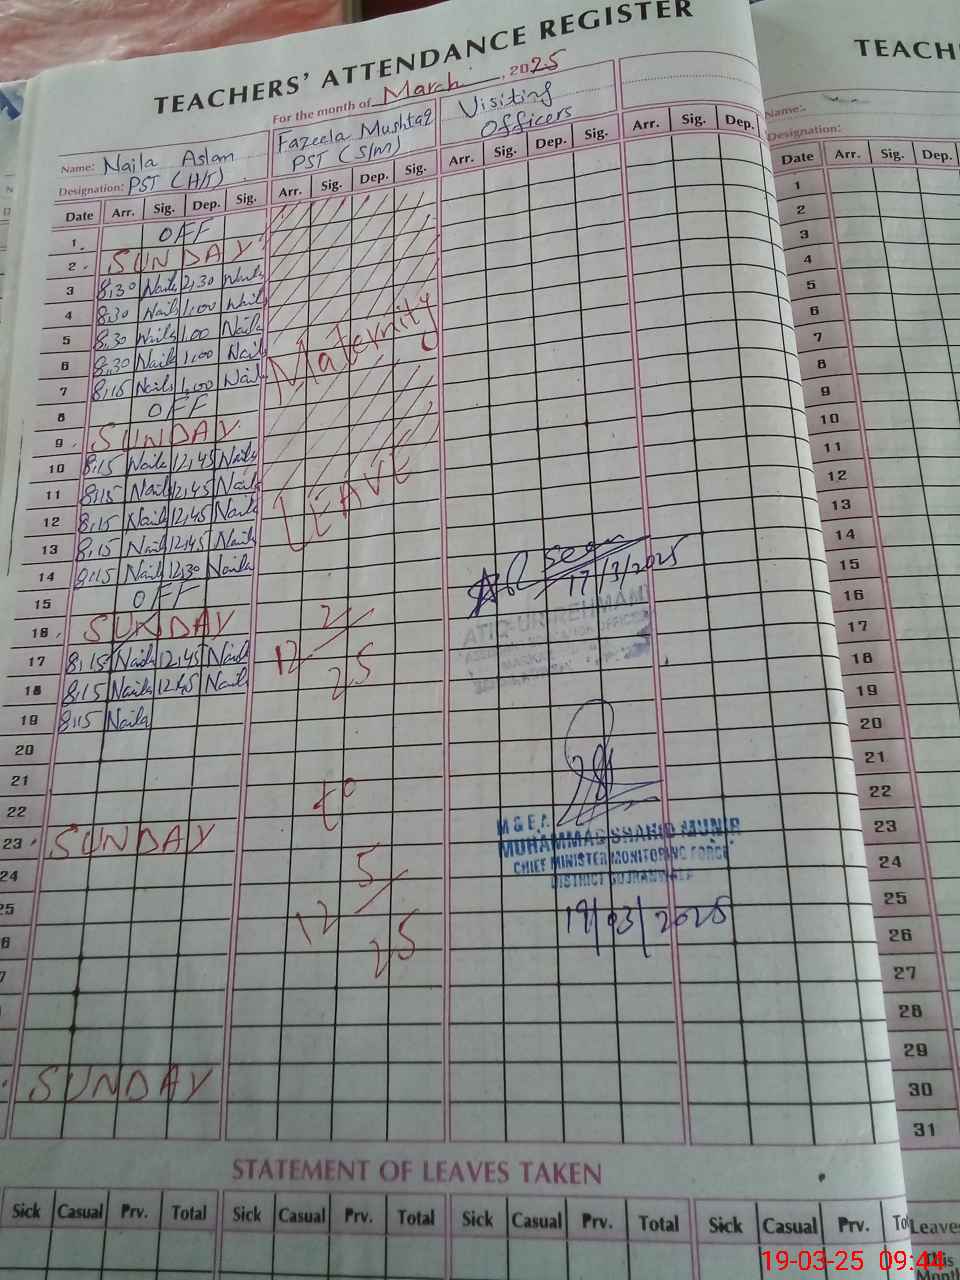 TEACHERS' ATTENDANCE REGISTER
TEACH
For the month of March, 2025
Name: Naila Aslam
Designation: PST (H/T)
Fazeela Mushtaq
PST (S/M)
Visiting
Officers
Name:
Designation:
Date Arr. Sig. Dep. Sig. Arr. Sig. Dep. Sig. Arr. Sig. Dep. Sig. Arr. Sig. Dep.
Date Arr. Sig. Dep.
1 OFF
2 SUNDAY
3 8,30 Naila 2,30 Naila
4 8,30 Naila 1,00 Naila
5 8,30 Naila 1,00 Naila
6 8,30 Naila 1,00 Naila
7 8,15 Naila 1,00 Naila
8 OFF
9 SUNDAY
10 8,15 Naila 12,45 Naila
11 8,15 Naila 12,45 Naila
12 8,15 Naila 12,45 Naila
13 8,15 Naila 12,45 Naila
14 8,15 Naila 12,30 Naila
15 OFF
16 SUNDAY
17 8,15 Naila 12,45 Naila
18 8,15 Naila 12,45 Naila
19 8,15 Naila
20
21
22
23 SUNDAY
24
25
6
7
SUNDAY
Maternity
LEAVE
12/2/25
to
12/5/25
Seen
17/3/2025
ATIQ-UR-REHMAN
M & E.A
MUHAMMAD SHAHID MUNIR
CHIEF MINISTER MONITORING FORCE
DISTRICT GUJRANWALA
19/03/2025
1
2
3
4
5
6
7
8
9
10
11
12
13
14
15
16
17
18
19
20
21
22
23
24
25
26
27
28
29
30
31
STATEMENT OF LEAVES TAKEN
Sick Casual Prv. Total Sick Casual Prv. Total Sick Casual Prv. Total Sick Casual Prv. To
Leaves
This
Month
19-03-25 09:44